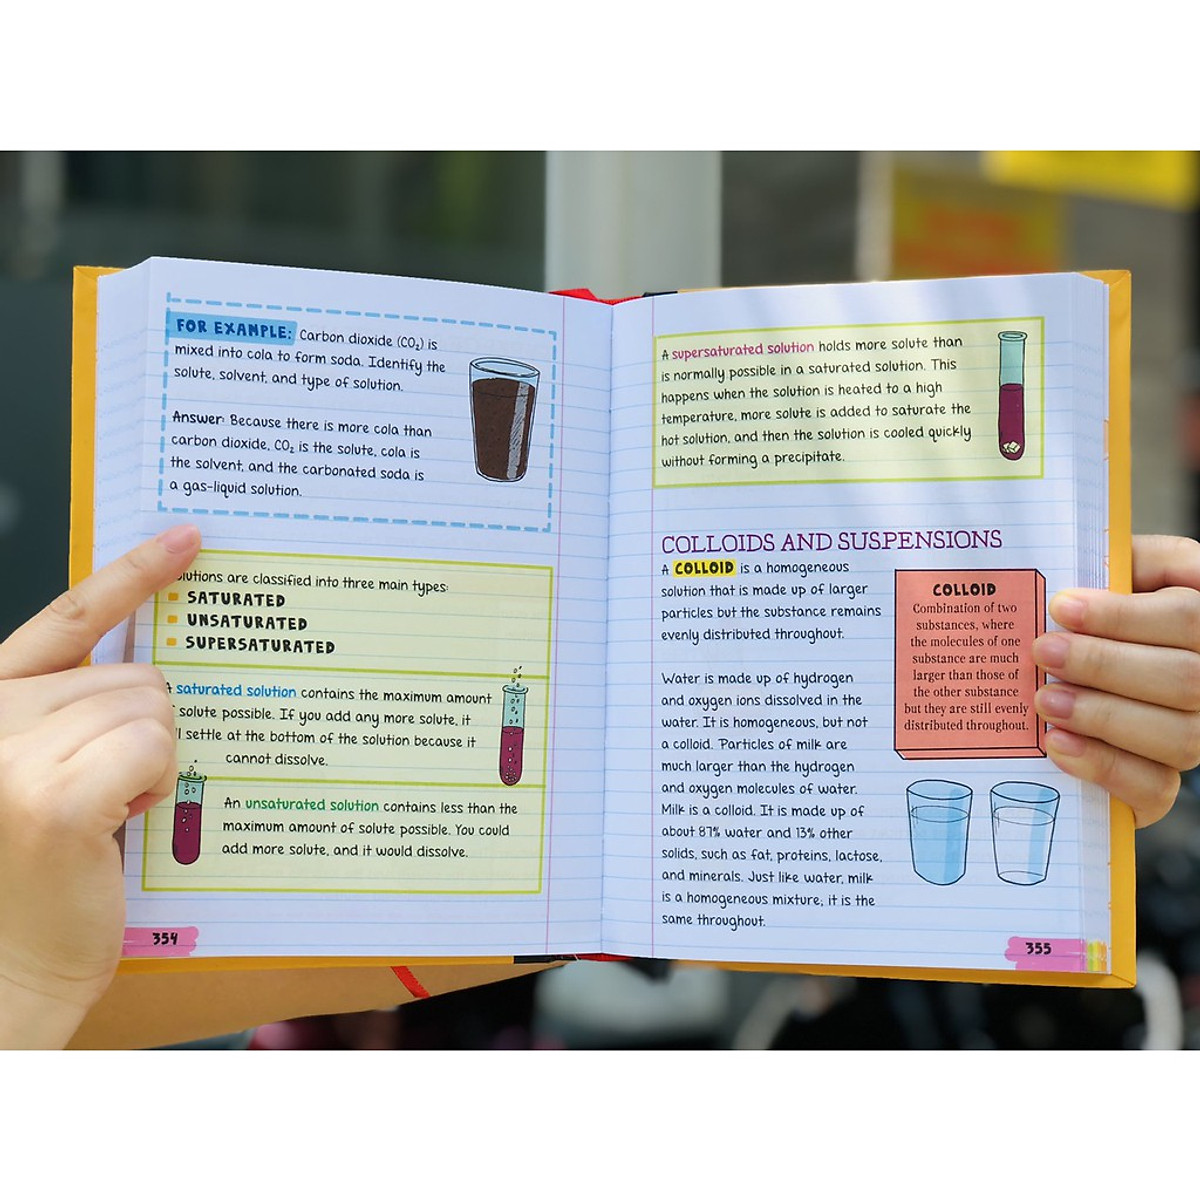 FOR EXAMPLE: Carbon dioxide (CO₂) is
mixed into cola to form soda. Identify the
solute, solvent, and type of solution.
Answer: Because there is more cola than
carbon dioxide, CO₂ is the solute, cola is
the solvent, and the carbonated soda is
a gas-liquid solution.
olutions are classified into three main types:
SATURATED
UNSATURATED
SUPERSATURATED
A saturated solution contains the maximum amount
solute possible. If you add any more solute, it
ll settle at the bottom of the solution because it
cannot dissolve.
An unsaturated solution contains less than the
maximum amount of solute possible. You could
add more solute, and it would dissolve.
354
A supersaturated solution holds more solute than
is normally possible in a saturated solution. This
happens when the solution is heated to a high
temperature, more solute is added to saturate the
hot solution, and then the solution is cooled quickly
without forming a precipitate.
COLLOIDS AND SUSPENSIONS
A COLLOID is a homogeneous
solution that is made up of larger
particles but the substance remains
evenly distributed throughout.
Water is made up of hydrogen
and oxygen ions dissolved in the
water. It is homogeneous, but not
a colloid. Particles of milk are
much larger than the hydrogen
and oxygen molecules of water.
Milk is a colloid. It is made up of
about 87% water and 13% other
solids, such as fat, proteins, lactose,
and minerals. Just like water, milk
is a homogeneous mixture; it is the
same throughout.
COLLOID
Combination of two
substances, where
the molecules of one
substance are much
larger than those of
the other substance
but they are still evenly
distributed throughout.
355